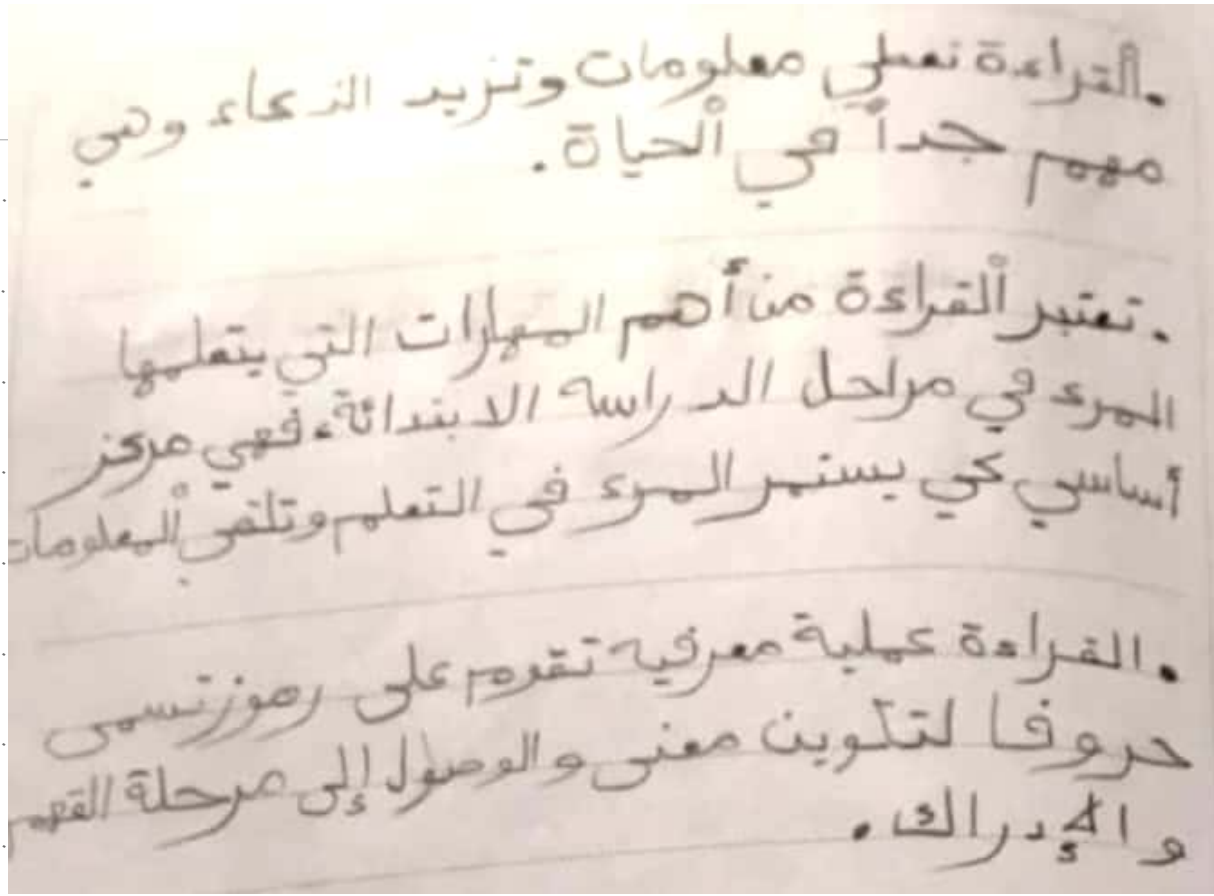 .القراءة تعطي معلومات وتزيد الذكاء وهي
مهم جداً في الحياة.
. تعتبر القراءة من أهم المهارات التي يتعلمها
المرء في مراحل الدراسة الابتدائة، فهي مركز
أساسي كي يستمر المرء في التعلم وتلقي المعلومات
. القراءة عملية معرفية تقوم على رموز تسمى
حروفا لتكوين معنى والوصول إلى مرحلة الفهم
والإدراك.